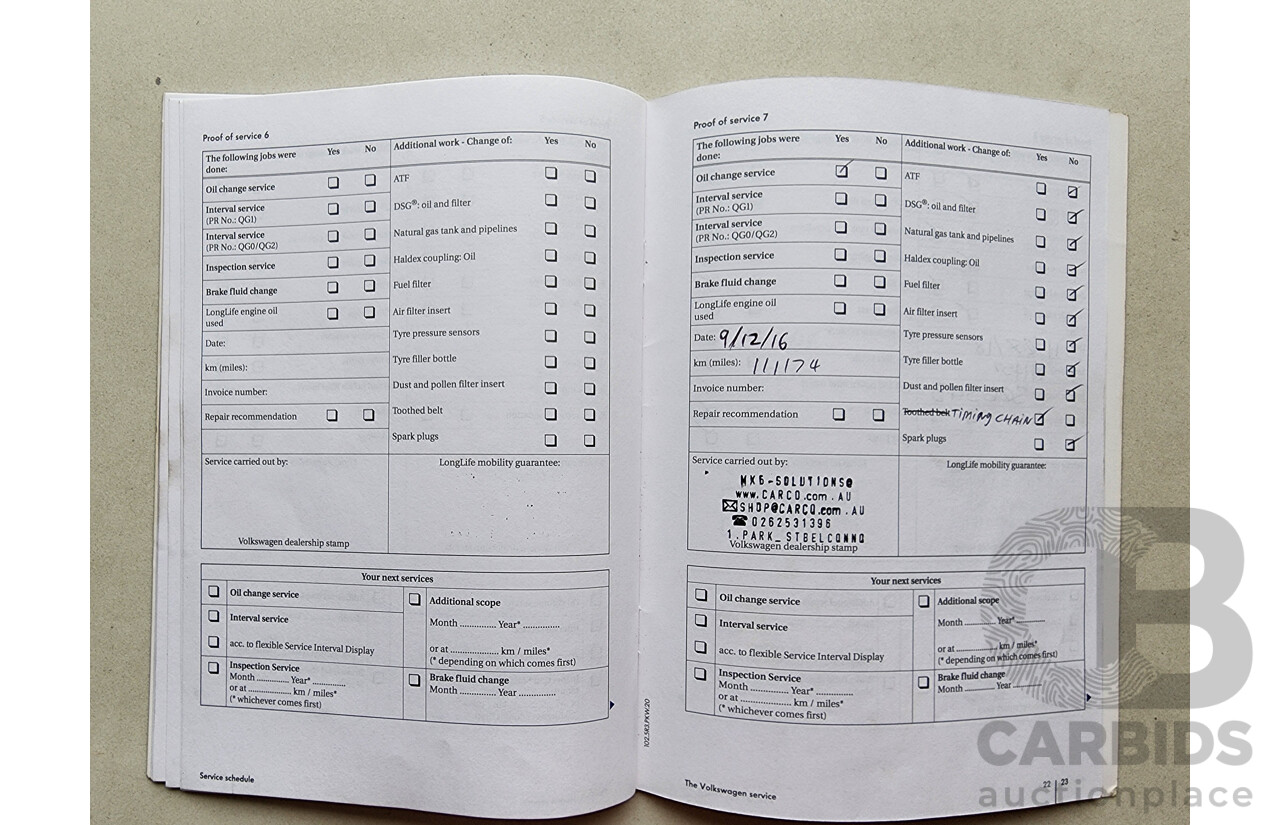 Proof of service 6
The following jobs were done: Yes No
Oil change service
Interval service
(PR No.: QG1)
Interval service
(PR No.: QG0/QG2)
Inspection service
Brake fluid change
LongLife engine oil
used
Date:
km (miles):
Invoice number:
Repair recommendation
Additional work - Change of: Yes No
ATF
DSG®: oil and filter
Natural gas tank and pipelines
Haldex coupling: Oil
Fuel filter
Air filter insert
Tyre pressure sensors
Tyre filler bottle
Dust and pollen filter insert
Toothed belt
Spark plugs
Service carried out by:
Volkswagen dealership stamp
LongLife mobility guarantee:
Your next services
Oil change service
Interval service
acc. to flexible Service Interval Display
Inspection Service
Month .............. Year* ..............
or at .................. km / miles*
(* whichever comes first)
Additional scope
Month .............. Year* ..............
or at .................. km / miles*
(* depending on which comes first)
Brake fluid change
Month .............. Year ..............
Service schedule
102.5R3.PKW.20
Proof of service 7
The following jobs were
done: Yes No
Oil change service
Interval service
(PR No.: QG1)
Interval service
(PR No.: QG0/QG2)
Inspection service
Brake fluid change
LongLife engine oil
used
Date: 9/12/16
km (miles): 111174
Invoice number:
Repair recommendation
Additional work - Change of: Yes No
ATF
DSG®: oil and filter
Natural gas tank and pipelines
Haldex coupling: Oil
Fuel filter
Air filter insert
Tyre pressure sensors
Tyre filler bottle
Dust and pollen filter insert
Toothed belt TIMING CHAIN
Spark plugs
Service carried out by:
MK6-SOLUTIONS@
www.CARCO.com.AU
SHOP@CARCO.com.AU
0262531396
1.PARK_STBELCONNO
Volkswagen dealership stamp
LongLife mobility guarantee:
Your next services
Oil change service
Interval service
acc. to flexible Service Interval Display
Inspection Service
Month .............. Year* ..............
or at .................. km / miles*
(* whichever comes first)
Additional scope
Month .............. Year* ..............
or at .................. km / miles*
(* depending on which comes first)
Brake fluid change
Month .............. Year ..............
The Volkswagen service
22 | 23
CB
CARBIDS
auctionplace